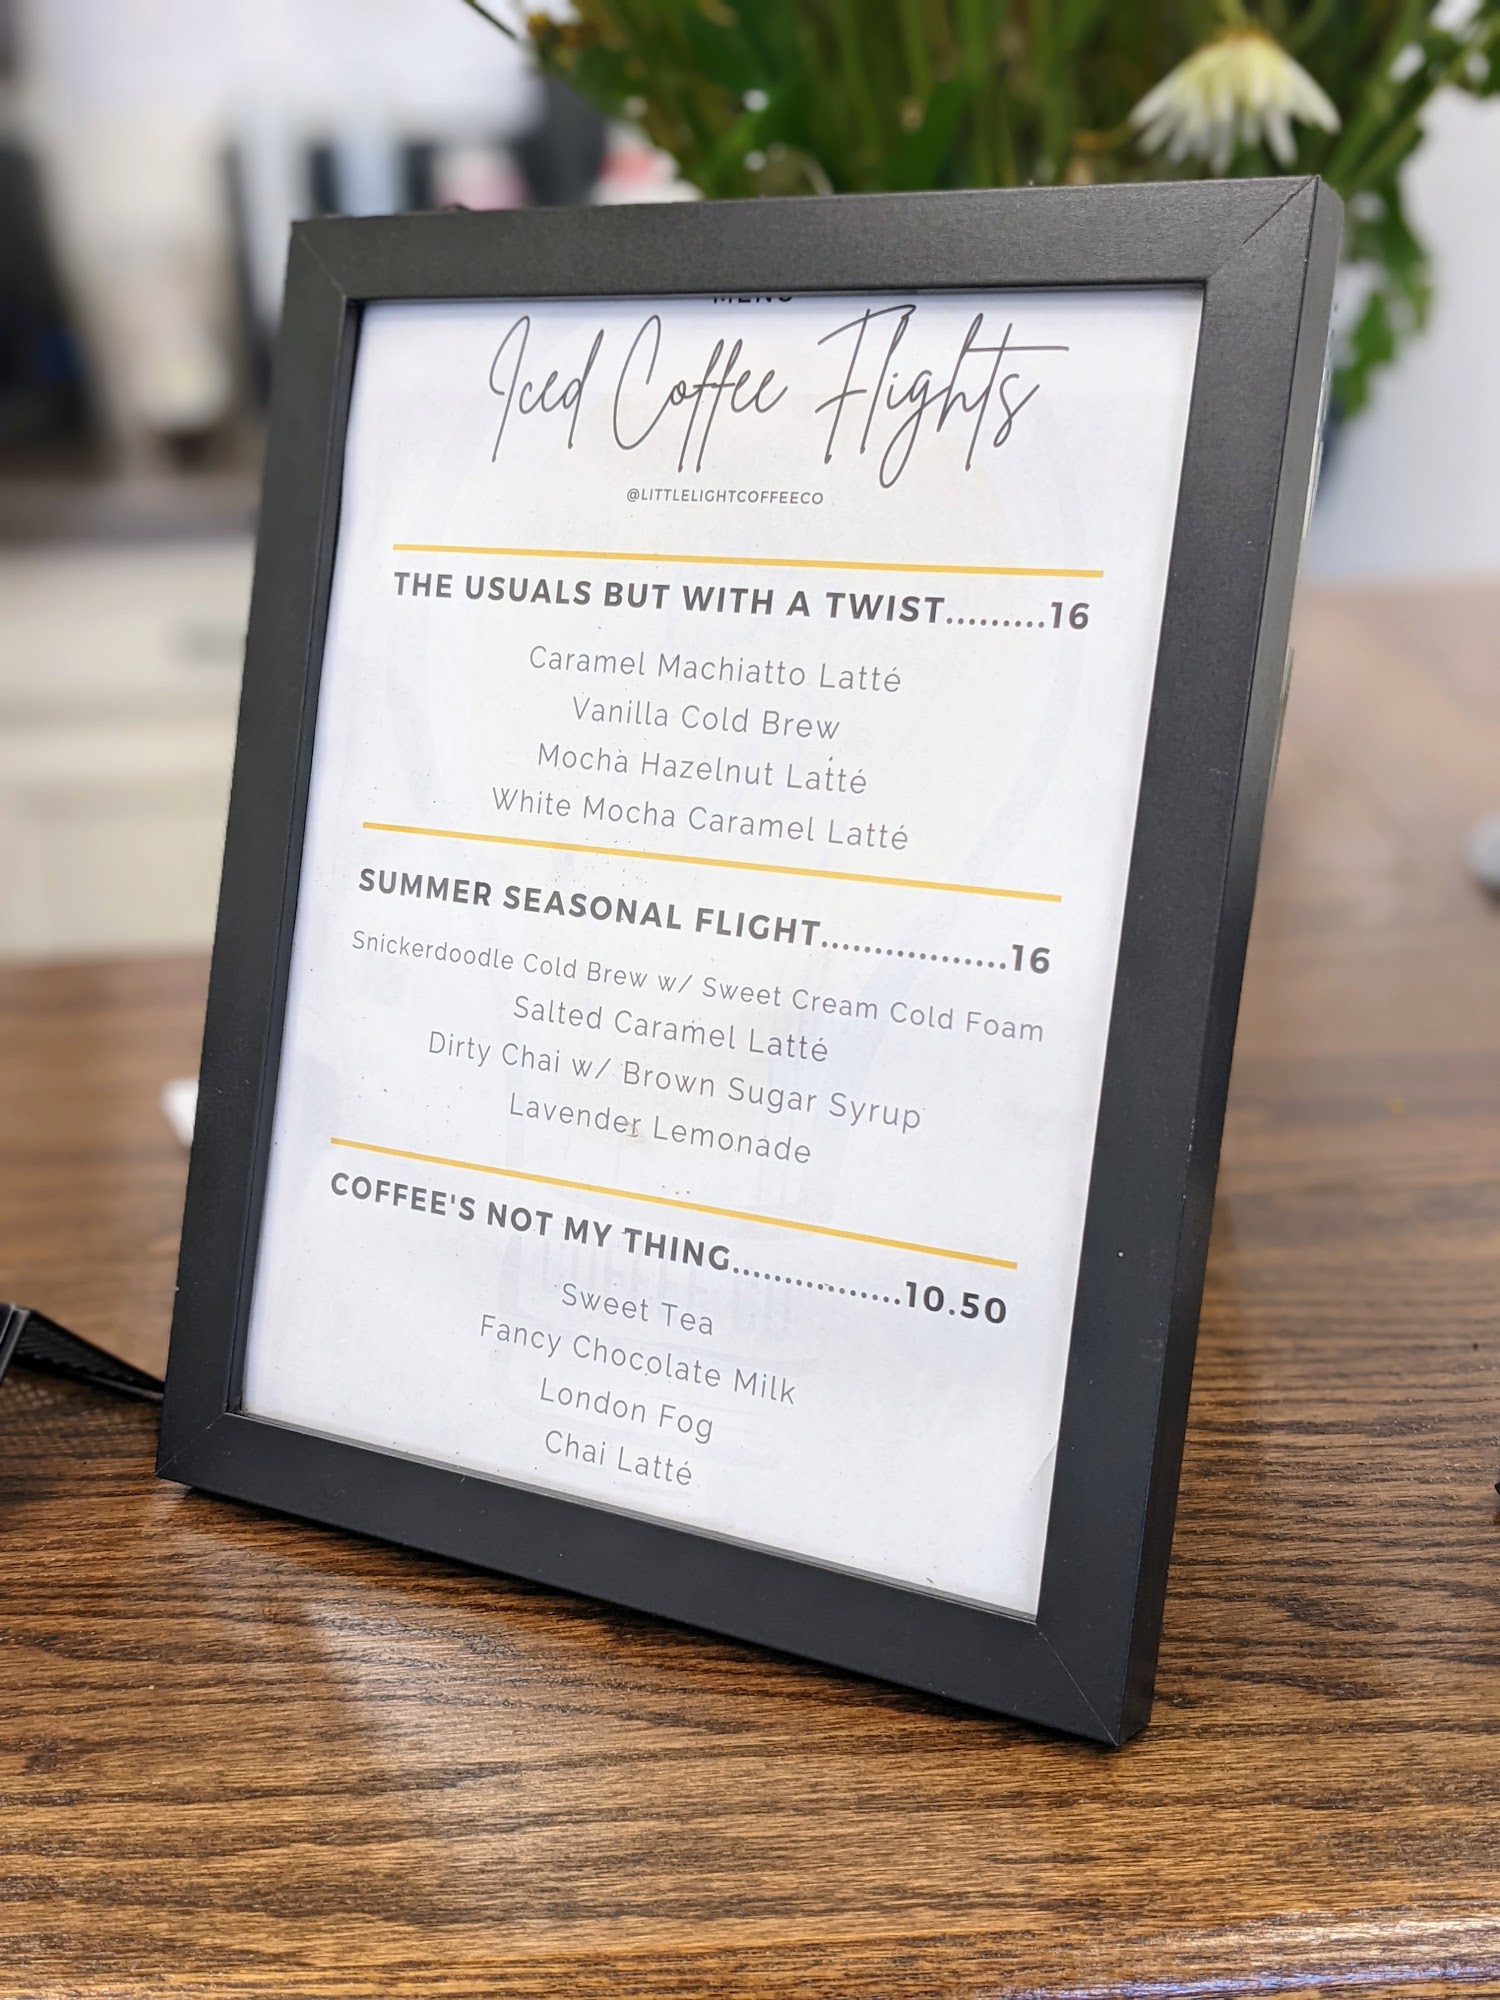 MENU
Iced Coffee Flights
@LITTLELIGHTCOFFEECO
THE USUALS BUT WITH A TWIST.........16
Caramel Machiatto Latté
Vanilla Cold Brew
Mocha Hazelnut Latté
White Mocha Caramel Latté
SUMMER SEASONAL FLIGHT.................16
Snickerdoodle Cold Brew w/ Sweet Cream Cold Foam
Salted Caramel Latté
Dirty Chai w/ Brown Sugar Syrup
Lavender Lemonade
COFFEE'S NOT MY THING................10.50
Sweet Tea
Fancy Chocolate Milk
London Fog
Chai Latté